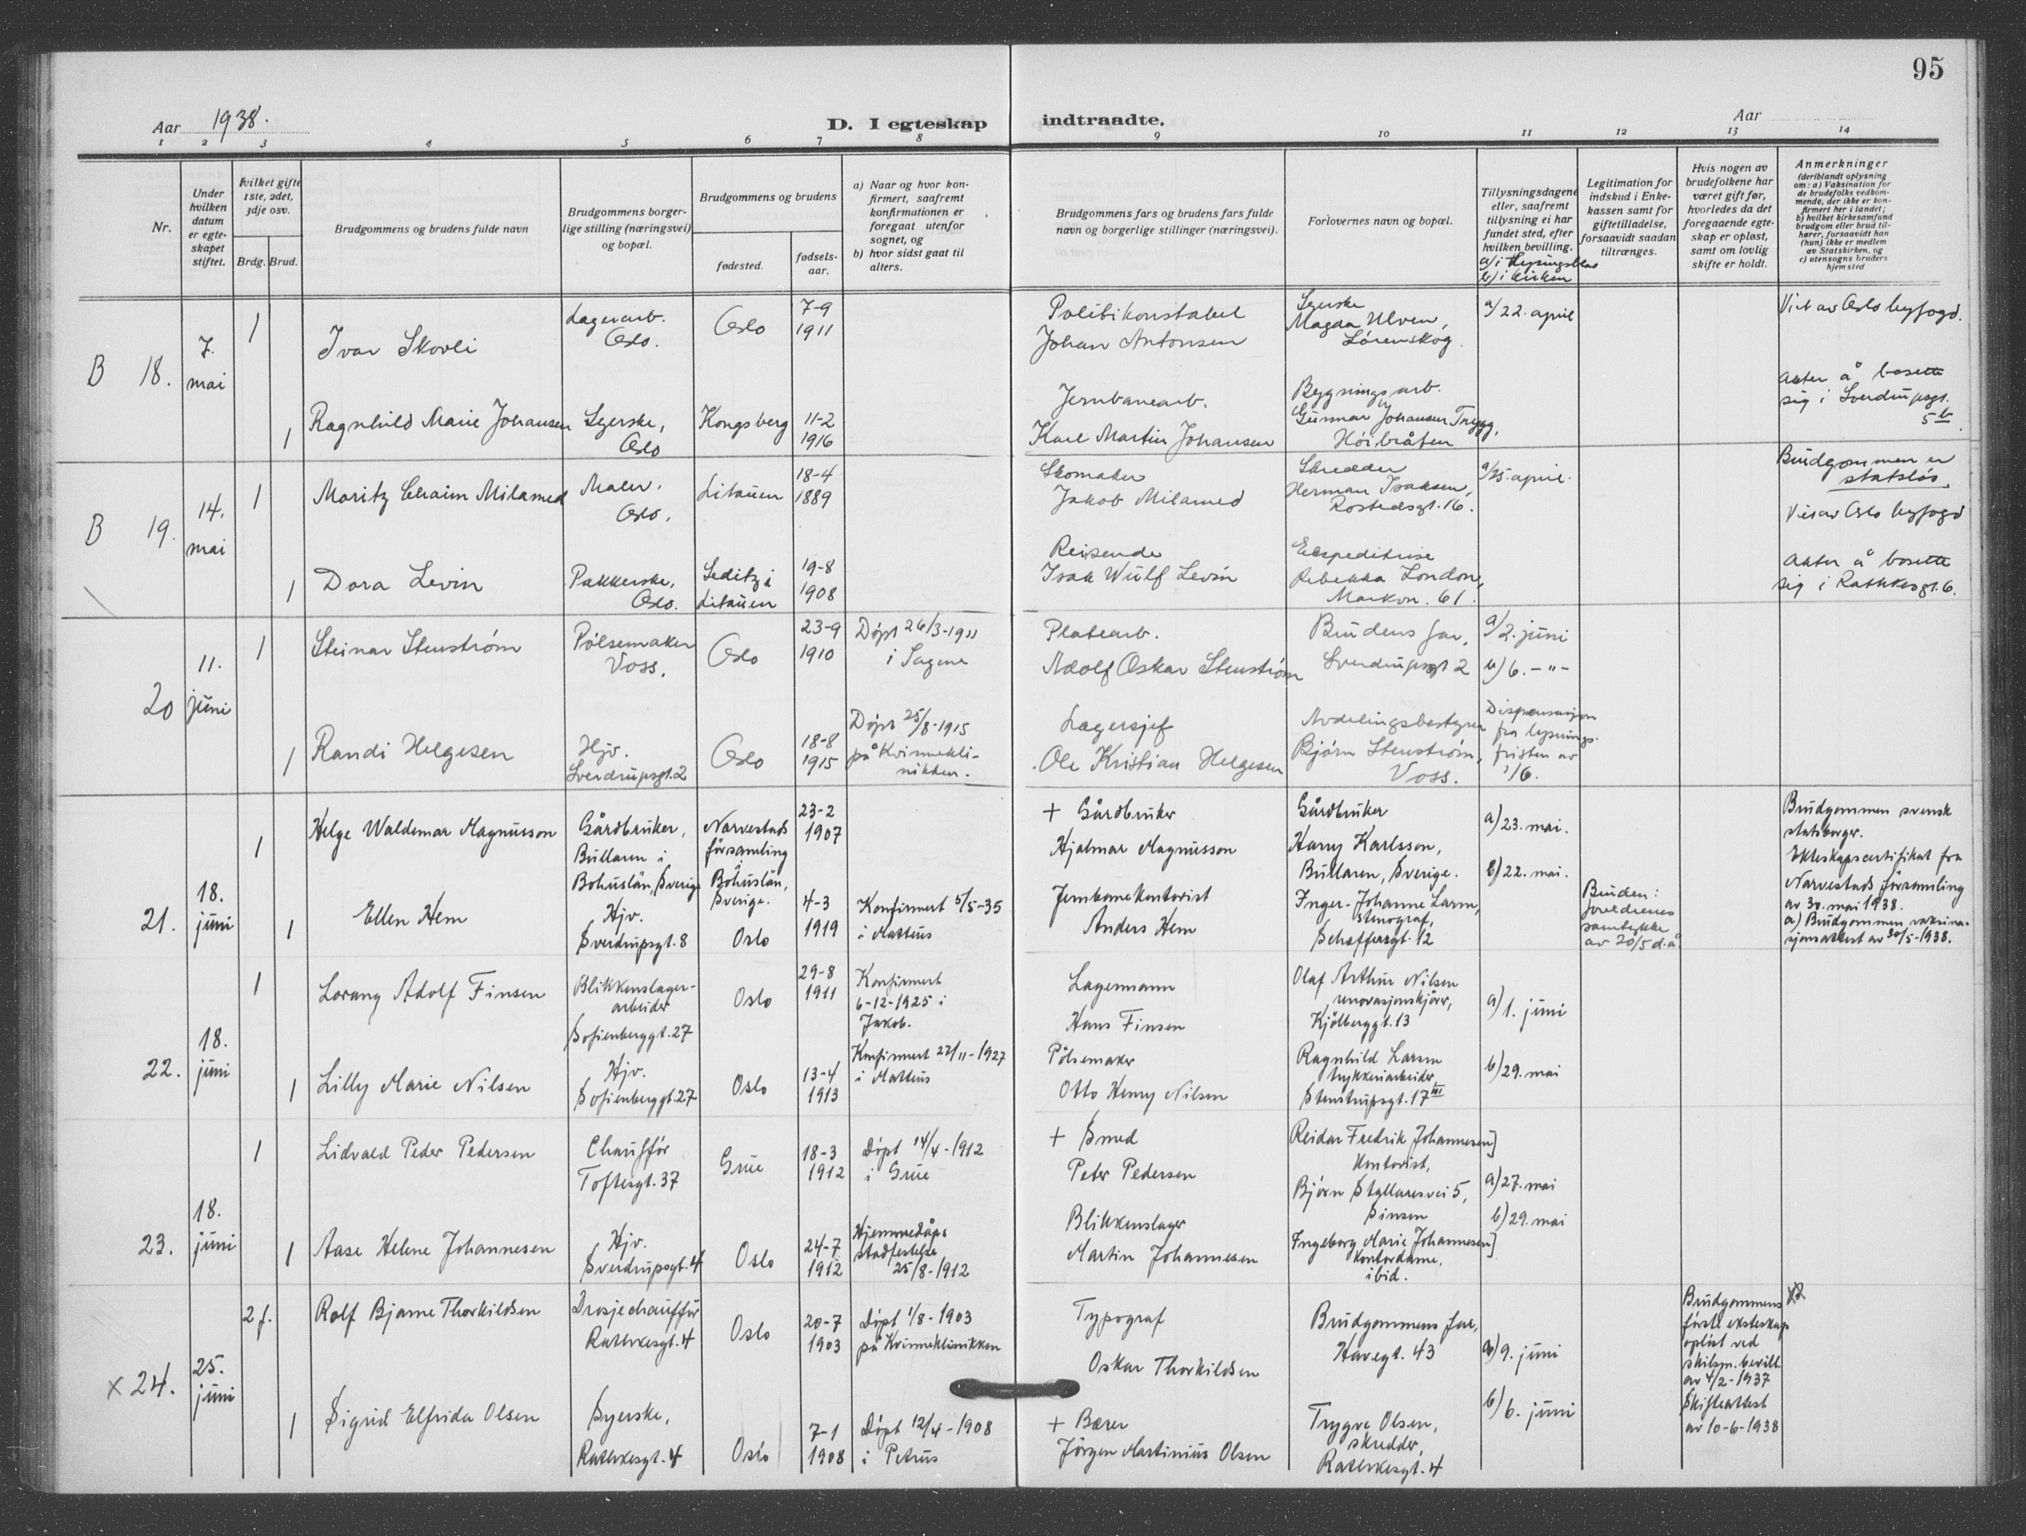 95
Aar 1938.
D. I egteskap
indtraadte.
Aar
1 2 3 4 5 6 7 8 9 10 11 12 13 14
Nr.
Under hvilken datum er egteskapet stiftet.
Hvilket gifte 1ste, 2det, 3dje osv.
Brdg. Brud.
Brudgommens og brudens fulde navn
Brudgommens borgerlige stilling (næringsvei) og bopæl.
Brudgommens og brudens
fødested.
fødselsaar.
a) Naar og hvor konfirmert, saafremt konfirmationen er foregaat utenfor sognet, og
b) hvor sidst gaat til alters.
Brudgommens fars og brudens fars fulde navn og borgerlige stillinger (næringsvei).
Forlovernes navn og bopæl.
Tillysningsdagene eller, saafremt tillysning ei har fundet sted, efter hvilken bevilling.
a/ i Lysingsblad
b/ i kirken
Legitimation for indskud i Enkekassen samt for giftetilladelse, forsaavidt saadan tiltrænges.
Hvis nogen av brudefolkene har været gift før, hvorledes da det foregaaende egteskap er opløst, samt om lovlig skifte er holdt.
Anmerkninger
(deriblandt oplysning om: a) Vaksination for de brudefolks vedkommende, der ikke er konfirmert her i landet; b) hvilket kirkesamfund brudgom eller brud tilhører, forsaavidt han (hun) ikke er medlem av Statskirken, og c) utensogns bruders hjemsted
B 18.
7. mai
1
Ivar Skovli
Lagerarb. Oslo.
Oslo
7-9 1911
Politikonstabel
Johan Antonsen
Syerske
Magda Ulven,
Lørenskog.
a/ 22. april
Viet av Oslo byfogd.
1
Ragnhild Marie Johansen
Syerske, Oslo
Kongsberg
11-2 1916
Jernbanearb.
Karl Martin Johansen
Bygningsarb.
Gunnar Johansen Trygg,
Høibråten
Akter å bosette
sig i Sverdrupsgt.
5b.
B 19.
14. mai
1
Moritz Chaim Milamed
Maler. Oslo.
Litauen
18-4 1889
Skomaker
Jakob Milamed
Skredder
Herman Isaksen,
Rostedsgt. 16.
a/25. april.
Brudgommen er
statsløs.
Viet av Oslo byfogd
1
Dora Levin
Pakkerske, Oslo.
Seditzi
Litauen
19-8 1908
Reisende
Isak Wulf Levin
Ekspeditrise
Rebekka London,
Markvn. 61.
Akter å bosette
sig i Rathkesgt. 6.
20
11. juni
1
Steinar Stenstrøm
Pølsemaker Voss.
Oslo
23-9 1910
Døpt 26/3-1911
i Sagene
Platearb.
Adolf Oskar Stenstrøm
Brudens far,
Sverdrupsgt 2
a/2. juni
b/6. -"-
1
Randi Helgesen
Hjv.
Sverdrupsgt. 2
Oslo
18-8 1915
Døpt 25/8-1915
på Kvinnekli-
nikken.
Lagersjef
Ole Kristian Helgesen
Avdelingsbestyrer
Bjørn Stenstrøm,
Voss.
Dispensasjon
fra lysnings-
fristen av
1/6.
21.
18. juni
1
Helge Waldemar Magnusson
Gårdbruker,
Bullaren i
Bohuslän, Sverige
Narvestads
församling
Bohuslän,
Sverige.
23-2 1907
+ Gårdbruker
Hjalmar Magnusson
Gårdbruker
Harry Karlsson,
Bullaren, Sverige.
a) 23. mai.
b) 22. mai.
Brudgommen svensk
statsborger.
Ekteskapscertifikat fra
Narvestads församling
av 30. mai 1938.
a) Brudgommen vaksina-
sjonsattest av 30/5-1938.
1
Ellen Hem
Hjv.
Sverdrupsgt. 8
Oslo
4-3 1919
Konfirmert 5/5-35
i Matteus
Jernbanekontorist
Anders Hem
Inger-Johanne Larm,
stenograf,
Schaffersgt. 12
Bruden:
foreldrenes
samtykke
av 20/5 d.å.
22.
18. juni
1
Lorang Adolf Finsen
Blikkenslager-
arbeider
Sofienberggt. 27
Oslo
29-8 1911
Konfirmert
6-12-1925 i
Jakob.
Lagermann
Hans Finsen
Olaf Arthur Nilsen
renovasjonskjører,
Kjølberggt. 13
a) 1. juni
1
Lilly Marie Nilsen
Hjv.
Sofienberggt. 27
Oslo
13-4 1913
Konfirmert 27/11-1927
i Matteus
Pølsemaker
Otto Henry Nilsen
Ragnhild Larsen
trykkeriarbeider,
Stenstrupsgt. 17 III
b) 29. mai
23.
18. juni
1
Lidvald Peder Pedersen
Chauffør
Toftesgt. 37
Grue
18-3 1912
Døpt 14/4-1912
i Grue
+ Smed
Peter Pedersen
Reidar Fredrik Johannesen]
kontorist,
Bjørn Stallaresvei 5,
Sinsen
a) 27. mai
b) 29. mai
1
Aase Helene Johannesen
Hjv.
Sverdrupsgt. 4
Oslo
24-7 1912
Hjemmedåps
stadfestelse
25/8-1912
Blikkenslager
Martin Johannesen
Ingeborg Marie Johannesen]
kontordame,
ibid.
x 24.
25. juni
2 f.
Rolf Bjarne Thorkildsen
Drosjechauffør
Rathkesgt. 4
Oslo
20-7 1903
Døpt 1/8-1903
på Kvinneklinikken
Typograf
Oskar Thorkildsen
Brudgommens far,
Havegt. 43
a) 9. juni
Brudgommens
første ekteskap
opløst ved
skilsm. bevill.
av 4/2-1937
Skifteattest
av 10-6-1938
1
Sigrid Elfrida Olsen
Syerske,
Rathkesgt. 4
Oslo
7-1 1908
Døpt 12/4-1908
i Petrus
+ Bærer
Jørgen Martinius Olsen
Trygve Olsen,
skredder,
Rathkesgt. 4
b) 6. juni